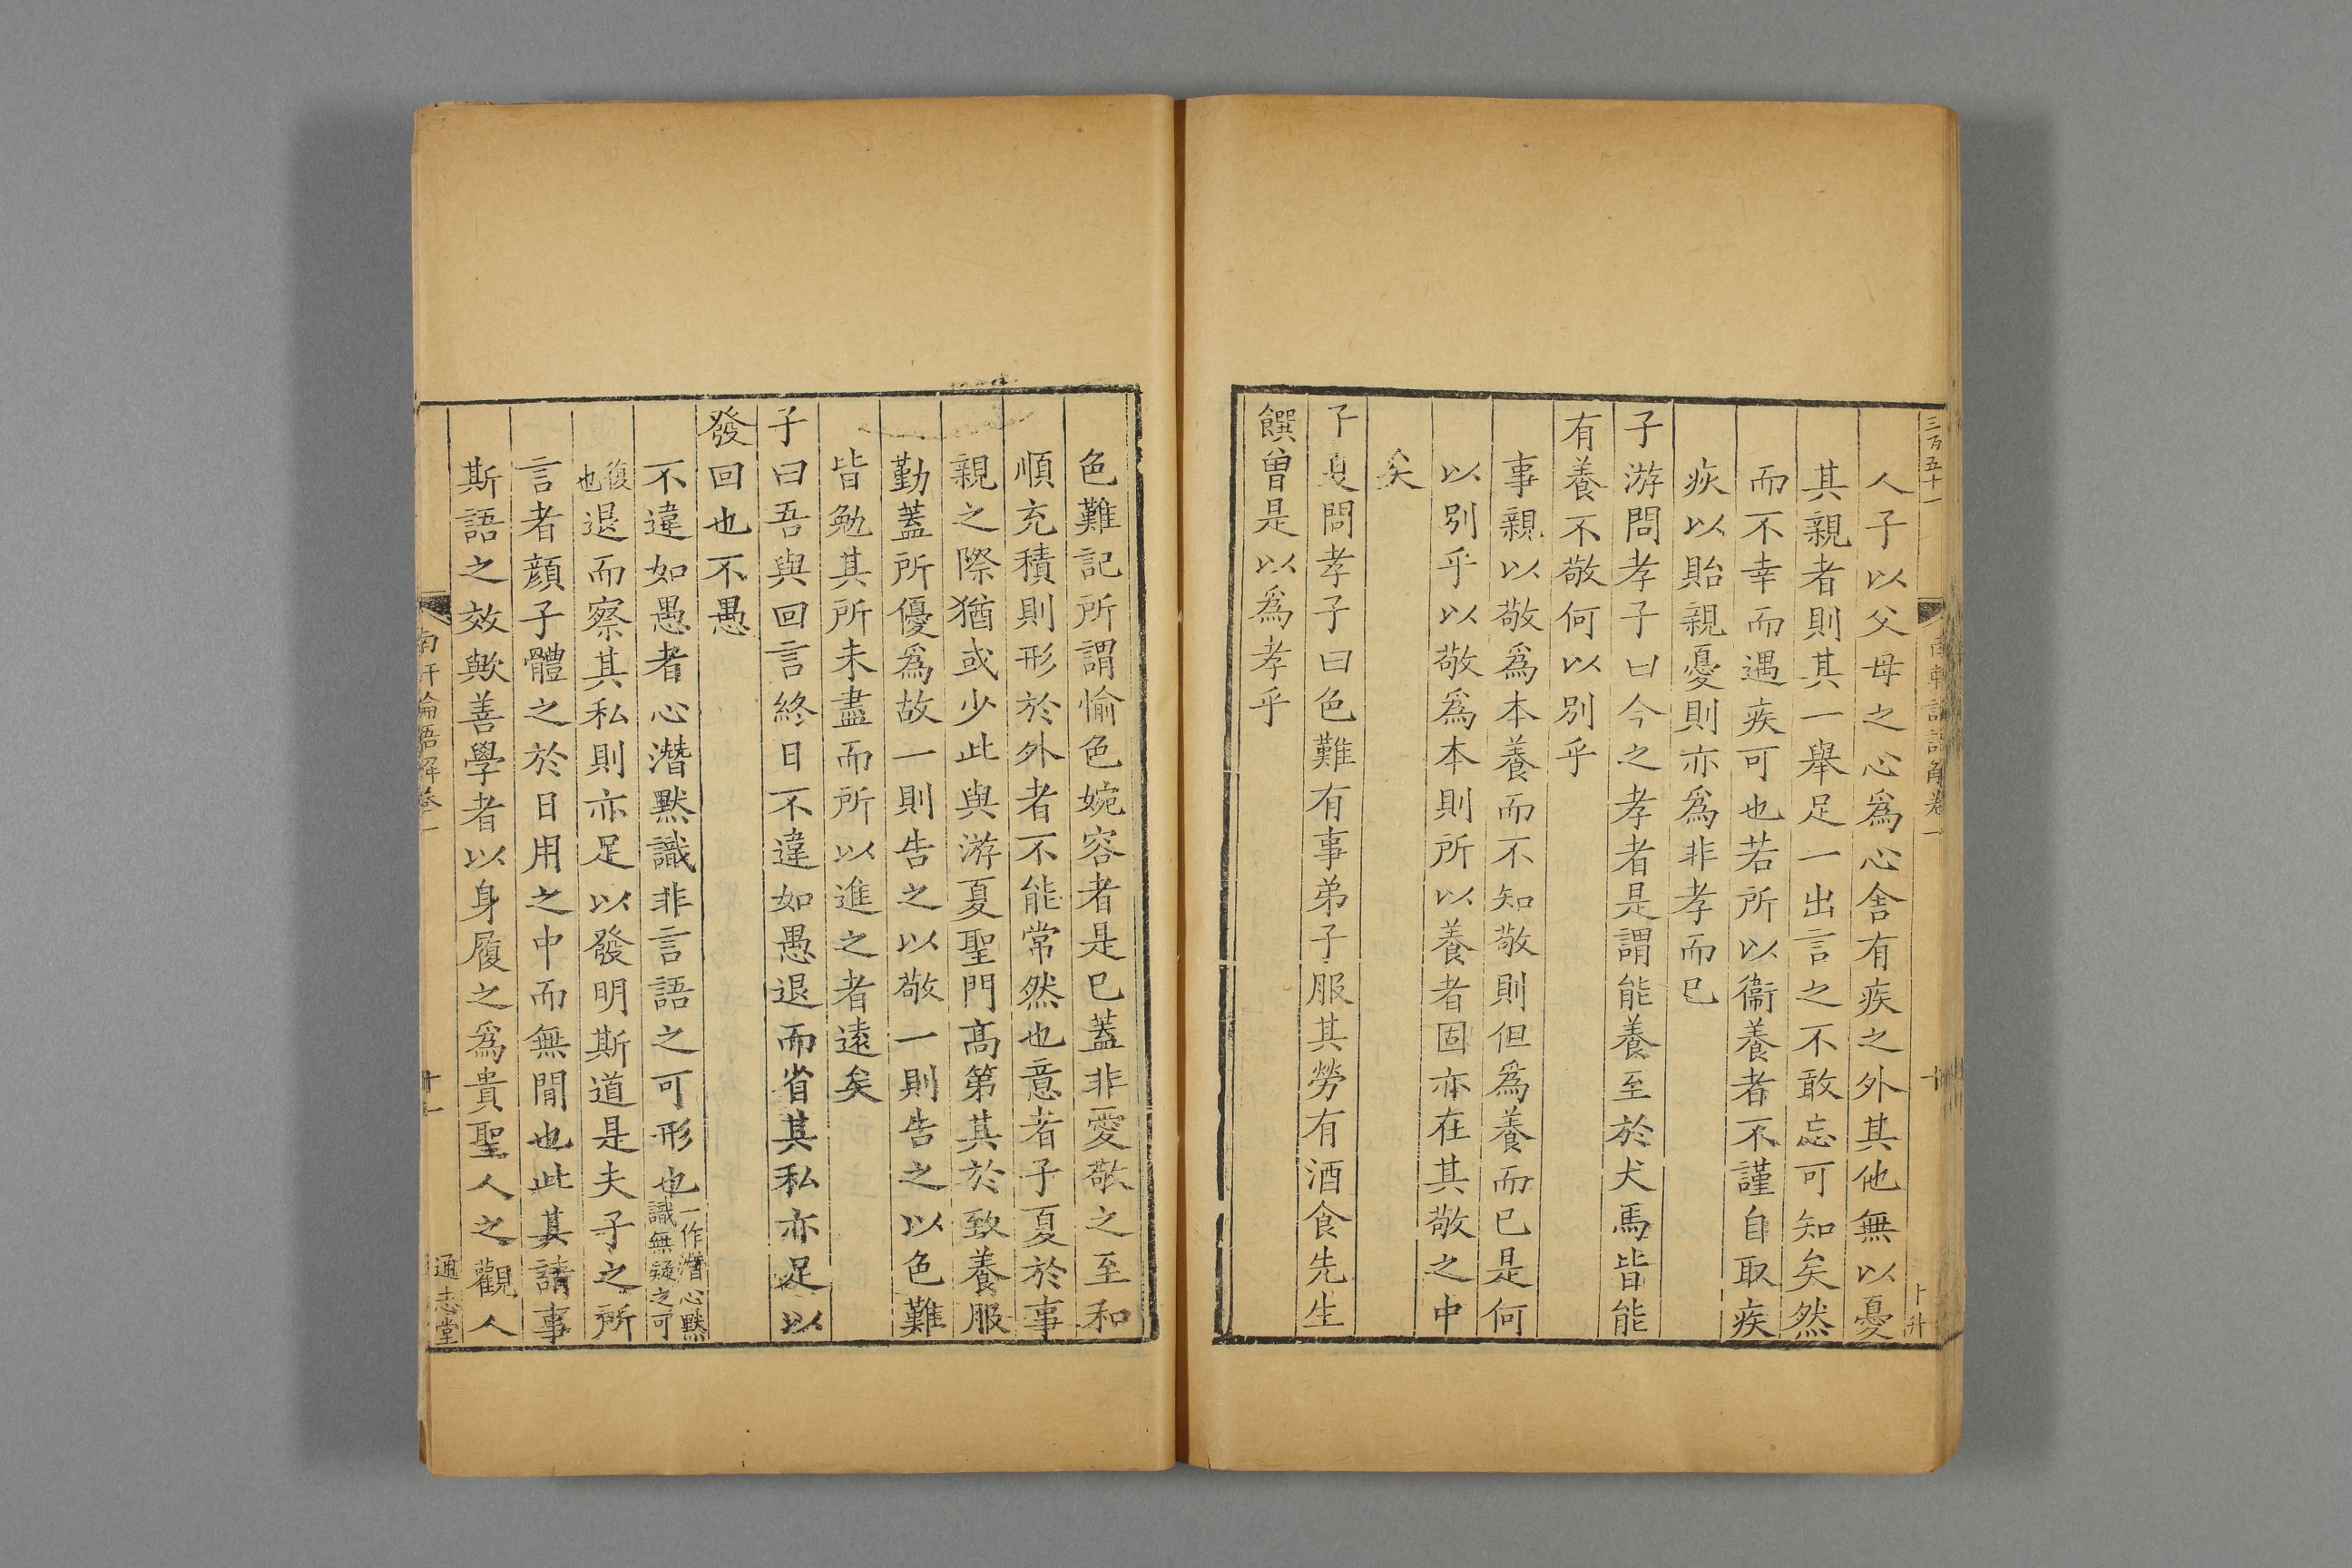 三百五十一
南軒論語解卷一
十
人子以父母之心爲心舍有疾之外其他無以憂
其親者則其一舉足一出言之不敢忘可知矣然
而不幸而遇疾可也若所以衞養者不謹自取疾
疢以貽親憂則亦爲非孝而已
子游問孝子曰今之孝者是謂能養至於犬馬皆能
有養不敬何以別乎
事親以敬爲本養而不知敬則但爲養而已是何
以別乎以敬爲本則所以養者固亦在其敬之中
矣
子夏問孝子曰色難有事弟子服其勞有酒食先生
饌曽是以爲孝乎
色難記所謂愉色婉容者是已蓋非愛敬之至和
順充積則形於外者不能常然也意者子夏於事
親之際猶或少此與游夏聖門高第其於致養服
勤蓋所優爲故一則告之以敬一則告之以色難
皆勉其所未盡而所以進之者遠矣
子曰吾與回言終日不違如愚退而省其私亦足以
發回也不愚
不違如愚者心潛默識非言語之可形也一作潛心默識無疑之可
復也退而察其私則亦足以發明斯道是夫子之所
言者顔子體之於日用之中而無間也此其請事
斯語之效歟善學者以身履之爲貴聖人之觀人
南軒論語解卷一
十一
通志堂